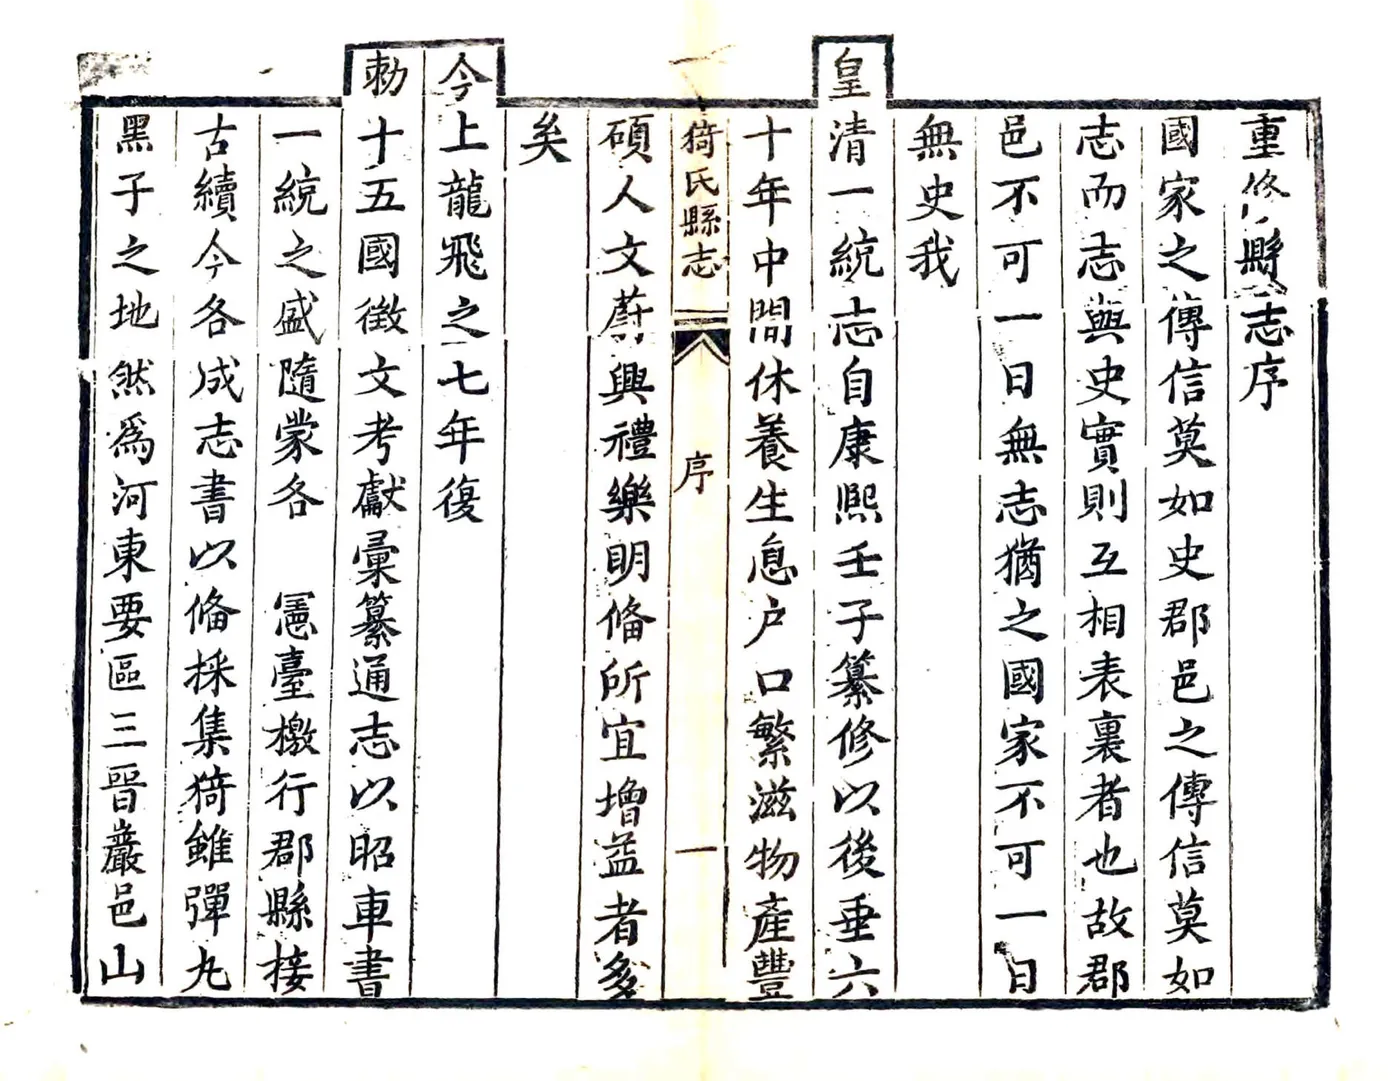 重修縣志序
國家之傳信莫如史郡邑之傳信莫如
志而志與史實則互相表裏者也故郡
邑不可一日無志猶之國家不可一日
無史我
皇清一統志自康熙壬子纂修以後垂六
十年中間休養生息户口繁滋物產豐
碩人文蔚興禮樂明俻所宜增益者多
矣
今上龍飛之七年復
勅十五國徵文考獻彚纂通志以昭車書
一統之盛隨蒙各 憲臺檄行郡縣接
古續今各成志書以俻採集猗雖彈丸
黑子之地然為河東要區三晉巖邑山
猗氏縣志
序
一